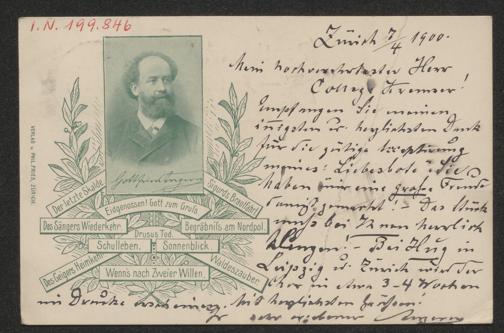 I.N. 199.846
Zürich 7/4 1900.
Mein hochverehrtester Herr
College Kremser!
Empfangen Sie meinen
innigsten u. herzlichsten Dank
für die gütige
meines: Liebesbote. Sie
haben mir eine große Freude
damit gemacht! – Das Stück
muß bei Ihnen herrlich
klingen! – Bei Hug in
Leipzig u. Zürich wird der
Chor in etwa 3–4 Wochen
im Drucke erscheinen. Mit herzlichsten Grüßen!
Ihr sehr ergebener Angerer
VERLAG v. PHIL. FRIES, ZÜRICH.
Gottfried Angerer
Der letzte Skalde
Eidgenossen! Gott zum Gruß.
Sigurds Brautfahrt
Des Sängers Wiederkehr.
Begräbnis am Nordpol.
Drusus Tod.
Schulleben.
Sonnenblick.
Des Geigers Heimkehr
Wenn's nach Zweier Willen.
Waldeszauber